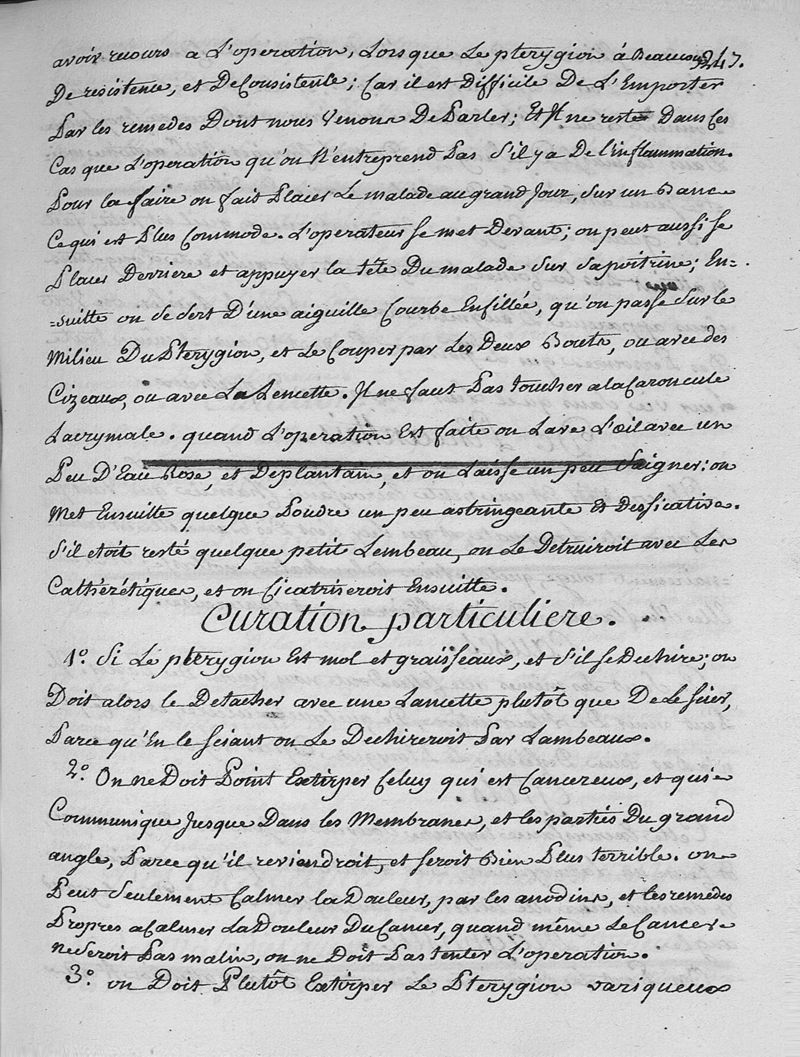 247.
avoir recours a L'operation, Lorsque Le pterygion à Beaucoup
De resistence, et De Consistence; Car il est Difficile De L'Emporter
Par les remedes Dont nous Venons De Parler; Et Il ne reste Dans Ces
Cas que L'operation qu'on N'entreprend Pas S'il y a De l'inflammation.
Pour la faire on fait Placer Le malade au grand Jour, Sur un Banc
Ce qui est Plus Commode. L'operateur se met Devant; on peut aussi se
Placer Derriere et appuyer la tête Du malade Sur Sa poitrine; En=
=suitte on Se Sert D'une aiguille Courbe Enfillée, qu'on passe Sur le
Milieu Du Pterygion, et Le Couper par Les Deux Bouts, ou avec des
Cizeaux, ou avec La Lencette. Il ne faut Pas toucher a la Caroncule
Lacrymale. quand L'operation Est faite on Lave L'oeil avec un
Peu D'Eau Rose, et De plantain, et on Laisse un peu Saigner: on
Met Ensuitte quelque Poudre un peu astringeante Et Dessicative.
S'il etoit resté quelque petit Lembeau, on Le Detruiroit avec Les
Cathérétiques, et on Cicatriseroit Ensuitte.
Curation particuliere.
1.° Si Le pterygion Est mol et graisseaux, et S'il se Dechire; on
Doit alors le Detacher avec une Lancette plutôt que De Le Scier,
Parce qu'En le Sciant on Le Dechireroit Par Lambeaux.
2.° On ne Doit Point Extirper Celuy qui est Cancereux, et qui
Communique Jusque Dans les Membranes, et les parties Du grand
angle, Parce qu'il reviendroit, et seroit Bien Plus terrible. on
Peut Seulement Calmer la Douleur, par les anodins, et les remedes
Propres a Calmer La Douleur Du Cancer, quand même Le Cancer
ne Seroit Pas malin, on ne Doit Pas tenter L'operation.
3.° on Doit Plutôt Extirper Le Pterygion variqueux